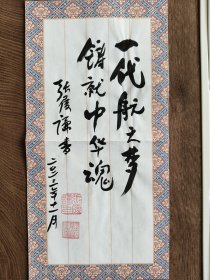 一代航天梦
铸就中华魂
张履谦书
二〇二〇年十一月